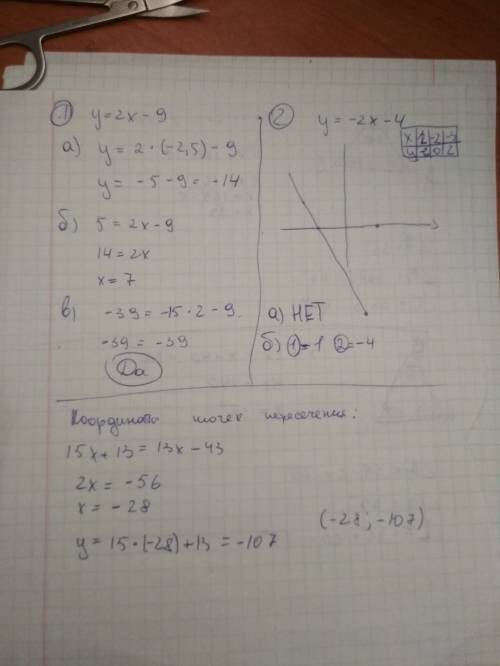 1) y=2x-9
а) y = 2·(-2,5)-9
y = -5-9 = -14
б) 5 = 2x-9
14=2x
x=7
в) -39 = -15·2-9.
-39 = -39
Да
2 y = -2x-4
x
y
а) НЕТ
б) 1=1 2=-4
Координаты точек пересечения:
15x+13=13x-43
2x = -56
x = -28
y = 15·(-28)+13 = -107
(-28; -107)